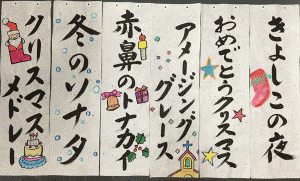 きよしこの夜
おめでとうクリスマス
アメージング
グレース
赤鼻のトナカイ
冬のソナタ
クリスマス
メドレー